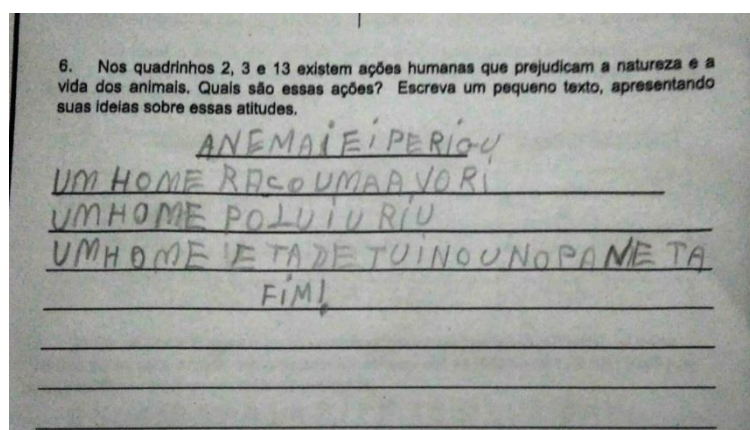 6. Nos quadrinhos 2, 3 e 13 existem ações humanas que prejudicam a natureza e a
vida dos animais. Quais são essas ações? Escreva um pequeno texto, apresentando
suas ideias sobre essas atitudes.
ANEMAIEIPERIGU
UM HOME RACOUMAAVORI
UMHOME POLUIU RIU
UMHOME IETADETUINOUNOPANETA
FIM!